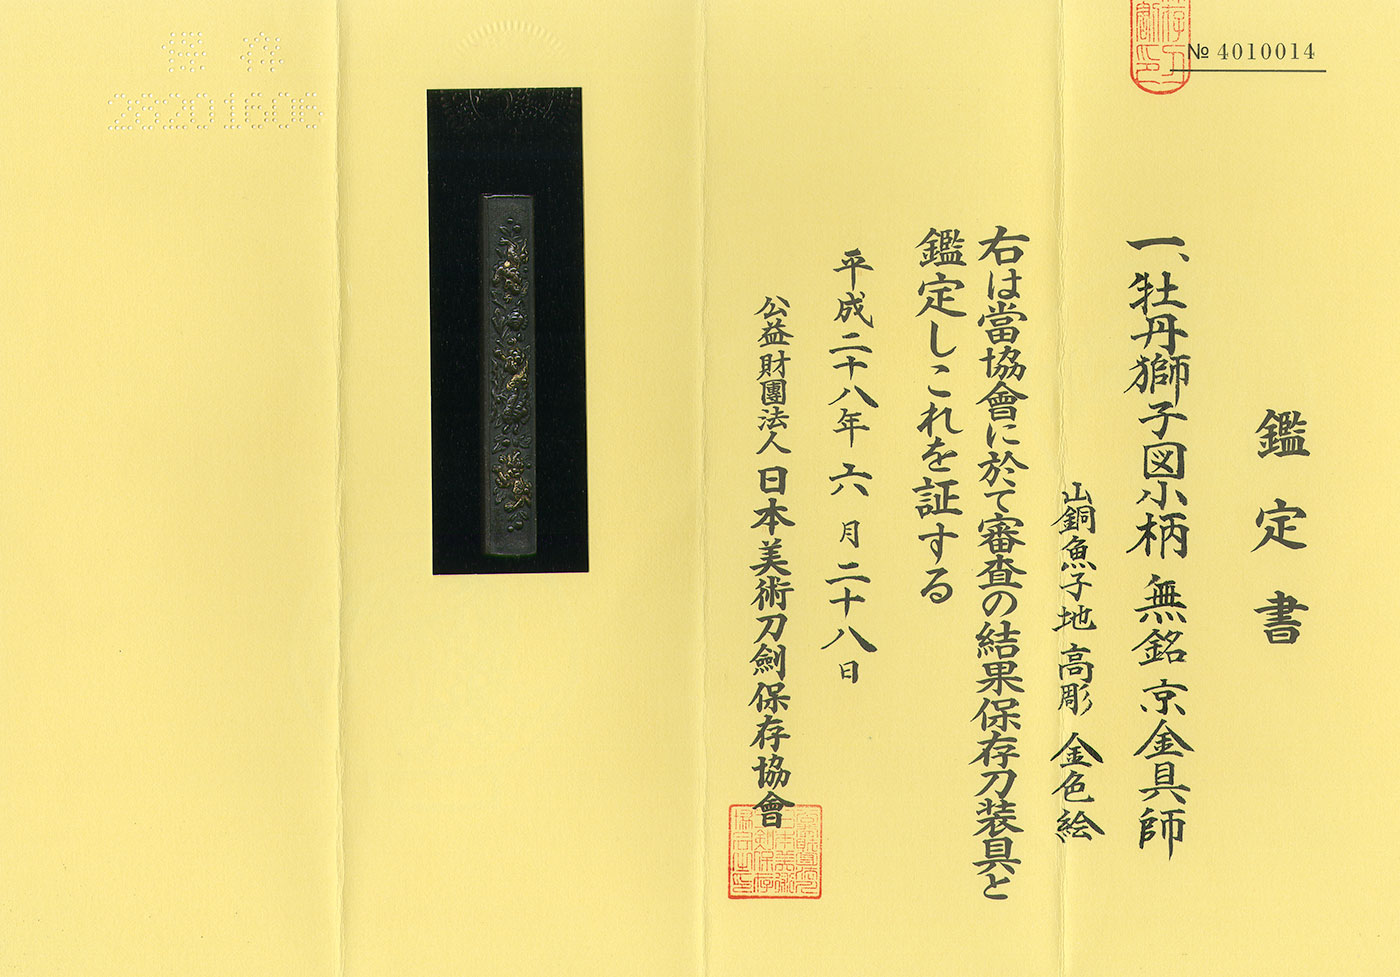 № 4010014
鑑定書
一、牡丹獅子図小柄 無銘 京金具師
山銅魚子地 高彫 金色絵
右は當協會に於て審査の結果保存刀装具と
鑑定しこれを証する
平成二十八年 六月二十八日
公益財團法人 日本美術刀劍保存協會
保存
28201606